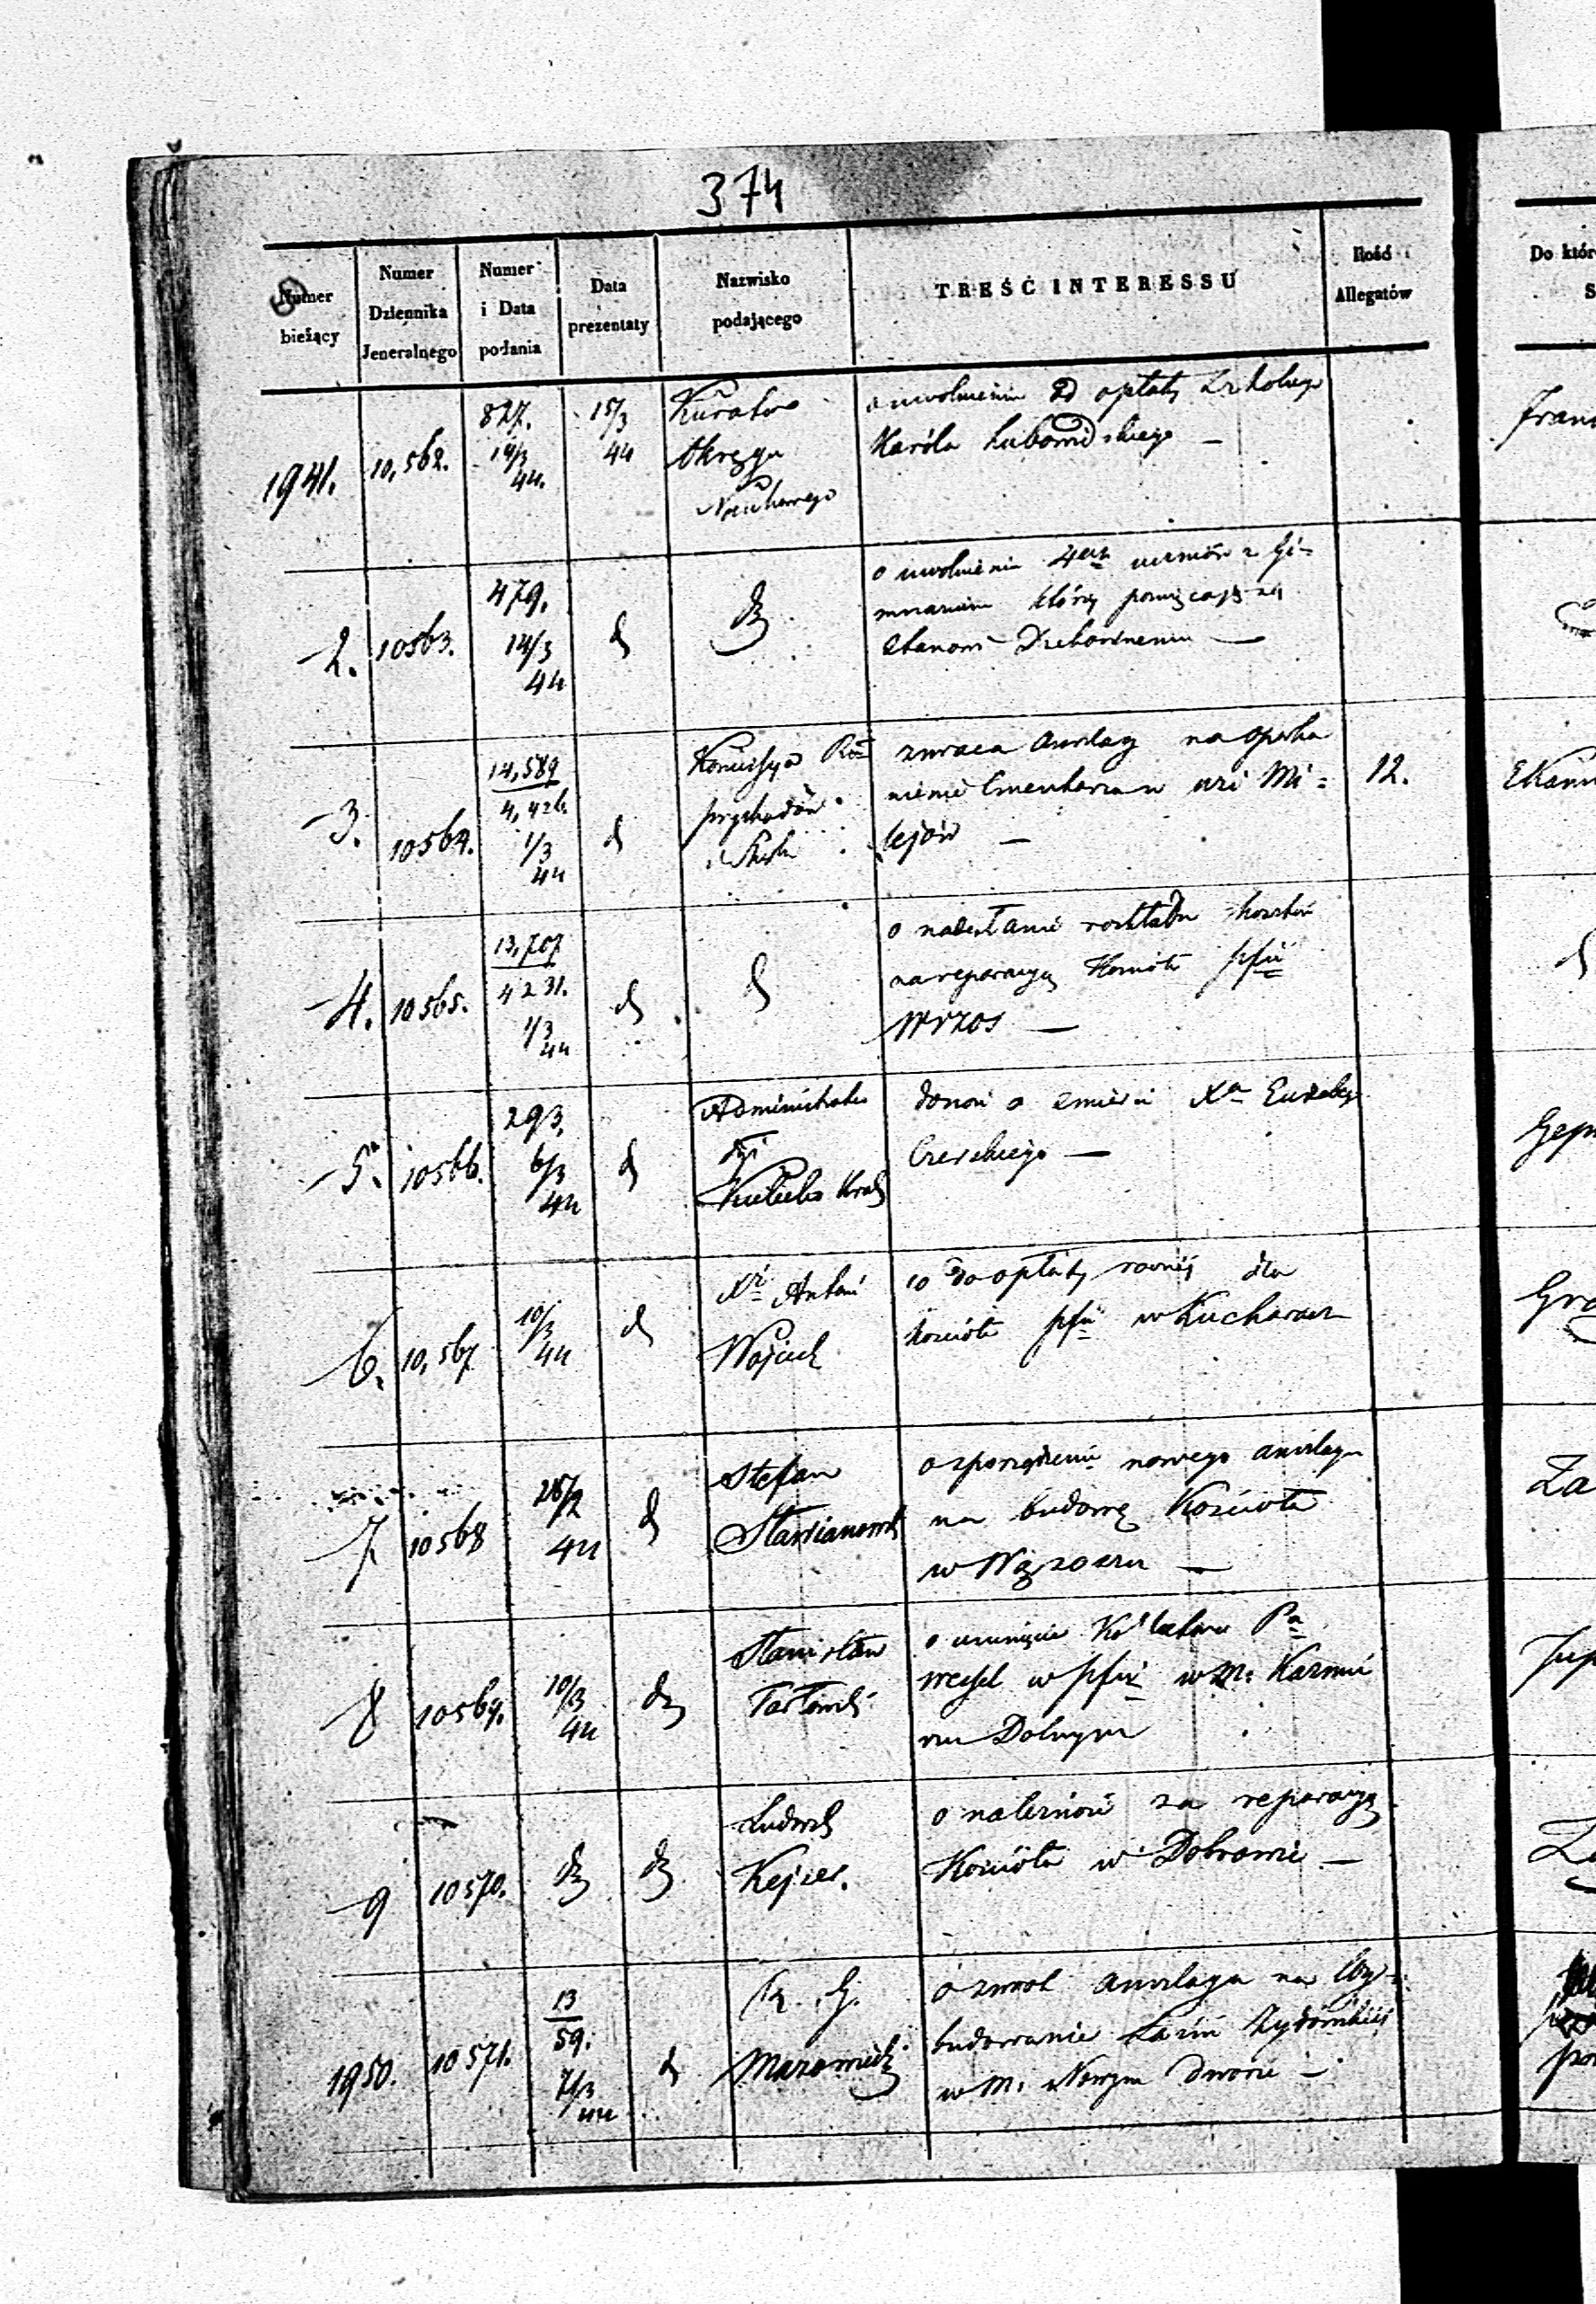 374
Numer bieżący
Numer Dziennika Jeneralnego
Numer i Data podania
Data prezentaty
Nazwisko podającego
TREŚĆ INTERESSU
Ilość Allegatów
Do któr
S
1941. 10,562. 827. 14/3 44. 15/3 44
Kurator
Okręgu
Naukowego
o uwolnieniu od opłaty
Karóla Lubomirskiego —
Fran
2. 10563. 479. 14/3 44 d dz
o uwolnienie 4ech uczniów z Gi=
mnazium którzy poswięcają się
stanowi Duchownemu —
3. 10564. 14,589 4,426 1/3 44 d
Kommissya Rzą
przychodów
i Skarbu
zwraca anszlag na oparka
nienie Cmentarza w wsi Mi=
lejów —
12.
4. 10565. 13,707 4231. 1/3 44 d d
o nadesłanie rozkładu kosztów
na reparacyą Kościoła pfii
Wrzos — d
5. 10566. 293. 6/3 44 d
Administrator
Dyi
Kielecko Krak
donosi o śmierci Xa Euzebego
—
6. 10,567 10/3 44 d
Xd Antoni
Wojciech
co do opłaty rocznej dla
kościoła pfii w Kucharach
Gra
7 10568 28/2 44 d
Stefan
o sporządzenie nowego anszlagu
na budowę Kościoła
w Wąsoszu —
Za
8 10569. 10/3 44 dz
Stanisław
Tarłowski
o usunięcie Kollatora Pa
Wessel w pfii w M. Kazimie
rzu Dolnym
9 10570. dz dz
Ludwik
Kejzer.
o należność za reparacyą
Kościoła w Dobrowie —
1950. 10571. 13 59. 7/3 44 d
R. G.
Mazowiecki
o zwrot anszlagu na wy=
budowanie Łaźni Żydowskiej
w M. Nowym Dworze —